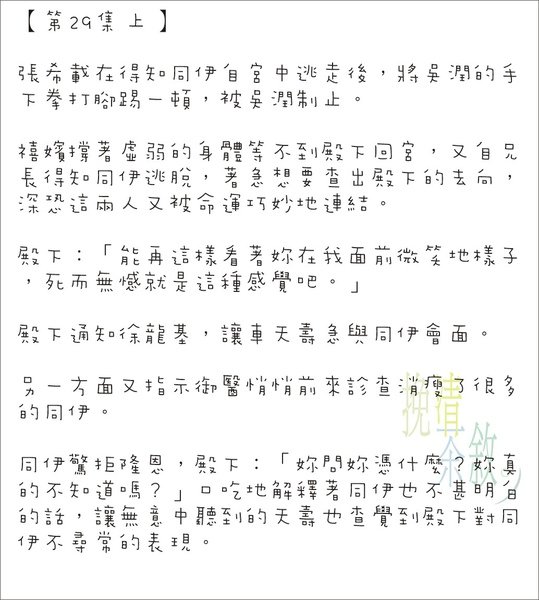 【第29集 上】
張希載在得知同伊自宮中逃走後，將吳潤的手
下拳打腳踢一頓，被吳潤制止。
禧嬪撐著虛弱的身體等不到殿下回宮，又自兄
長得知同伊逃脫，著急想要查出殿下的去向，
深恐這兩人又被命運巧妙地連結。
殿下：「能再這樣看著妳在我面前微笑地樣子
，死而無憾就是這種感覺吧。」
殿下通知徐龍基，讓車天壽急與同伊會面。
另一方面又指示御醫悄悄前來診查消瘦了很多
的同伊。
同伊驚拒隆恩，殿下：「妳問妳憑什麼？妳真
的不知道嗎？」口吃地解釋著同伊也不甚明白
的話，讓無意中聽到的天壽也查覺到殿下對同
伊不尋常的表現。
挽清
余敘